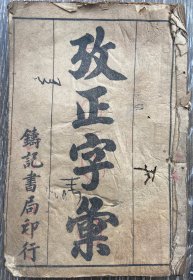 攷正字彙
鑄記書局印行